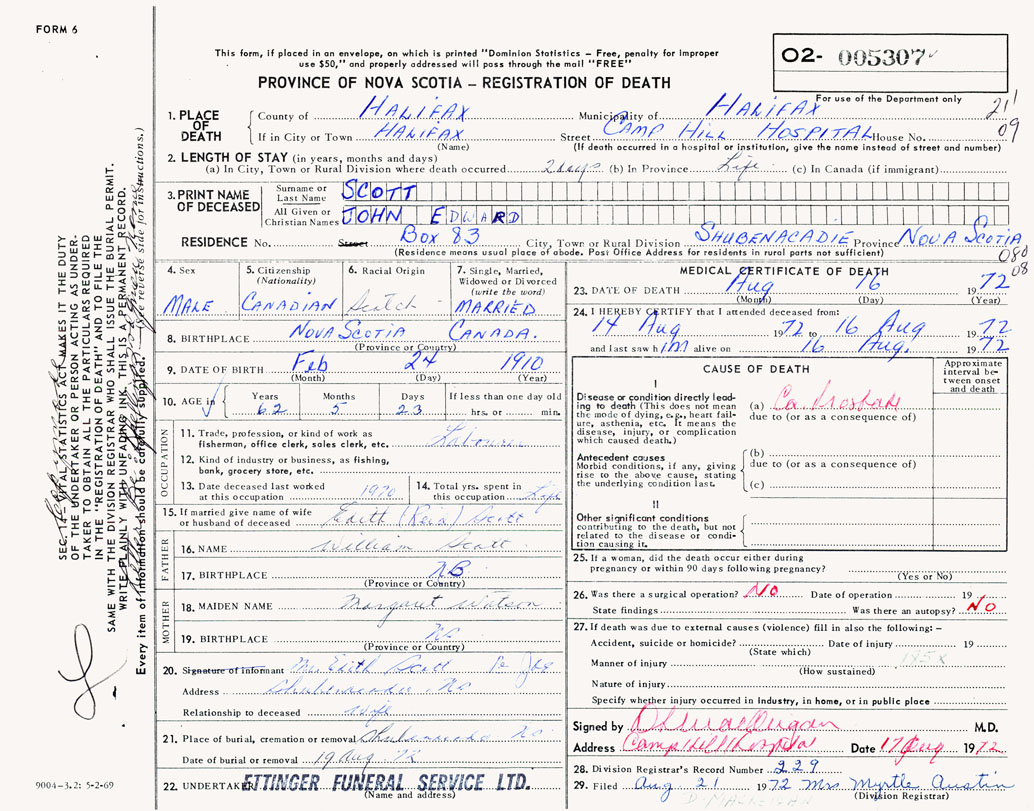 FORM 6
This form, if placed in an envelope, on which is printed "Dominion Statistics – Free, penalty for improper
use $50," and properly addressed will pass through the mail "FREE"
PROVINCE OF NOVA SCOTIA – REGISTRATION OF DEATH
O2- 005307
For use of the Department only
21
09
1. PLACE OF DEATH
County of HALIFAX Municipality of HALIFAX
If in City or Town HALIFAX Street CAMP HILL HOSPITAL House No.
(Name) (If death occurred in a hospital or institution, give the name instead of street and number)
2. LENGTH OF STAY (in years, months and days)
(a) In City, Town or Rural Division where death occurred 2 days (b) In Province Life (c) In Canada (if immigrant)
3. PRINT NAME OF DECEASED
Surname or Last Name SCOTT
All Given or Christian Names JOHN EDWARD
RESIDENCE No. Street Box 83 City, Town or Rural Division SHUBENACADIE Province NOVA SCOTIA
(Residence means usual place of abode. Post Office Address for residents in rural parts not sufficient)
080
08
4. Sex
MALE
5. Citizenship
(Nationality)
CANADIAN
6. Racial Origin
Scotch
7. Single, Married,
Widowed or Divorced
(write the word)
MARRIED
8. BIRTHPLACE NOVA SCOTIA CANADA.
(Province or Country)
9. DATE OF BIRTH Feb 24 1910
(Month) (Day) (Year)
10. AGE in
Years Months Days If less than one day old
62 5 23 hrs. or min.
OCCUPATION
11. Trade, profession, or kind of work as
fisherman, office clerk, sales clerk, etc. Labourer
12. Kind of industry or business, as fishing,
bank, grocery store, etc.
13. Date deceased last worked
at this occupation 1970
14. Total yrs. spent in
this occupation Life
15. If married give name of wife
or husband of deceased Edith (Reid) Scott
FATHER
16. NAME William Scott
17. BIRTHPLACE NB
(Province or Country)
MOTHER
18. MAIDEN NAME Margaret Watson
19. BIRTHPLACE NS
(Province or Country)
20. Signature of informant Mrs Edith Scott
Address Shubenacadie NS
Relationship to deceased wife
21. Place of burial, cremation or removal Shubenacadie NS
Date of burial or removal 19 Aug 72
22. UNDERTAKER ETTINGER FUNERAL SERVICE LTD.
(Name and address)
MEDICAL CERTIFICATE OF DEATH
23. DATE OF DEATH Aug 16 1972
(Month) (Day) (Year)
24. I HEREBY CERTIFY that I attended deceased from:
14 Aug 1972 to 16 Aug 1972
and last saw him alive on 16 Aug. 1972
CAUSE OF DEATH
Approximate
interval be-
tween onset
and death
I
Disease or condition directly lead-
ing to death (This does not mean
the mode of dying, e.g., heart fail-
ure, asthenia, etc. It means the
disease, injury, or complication
which caused death.)
(a) Ca Prostate
due to (or as a consequence of)
Antecedent causes
Morbid conditions, if any, giving
rise to the above cause, stating
the underlying condition last.
(b)
due to (or as a consequence of)
(c)
II
Other significant conditions
contributing to the death, but not
related to the disease or condi-
tion causing it.
25. If a woman, did the death occur either during
pregnancy or within 90 days following pregnancy?
(Yes or No)
26. Was there a surgical operation? No Date of operation 19
State findings Was there an autopsy? No
27. If death was due to external causes (violence) fill in also the following: –
Accident, suicide or homicide? Date of injury 19
(State which)
Manner of injury
(How sustained)
Nature of injury
Specify whether injury occurred in Industry, in home, or in public place
Signed by M.D.
Address Camp Hill Hospital Date 17 Aug 1972
28. Division Registrar's Record Number 229
29. Filed Aug 21 1972 Mrs Myrtle Austin
(Division Registrar)
SEC. 14 – VITAL STATISTICS ACT MAKES IT THE DUTY
OF THE UNDERTAKER OR PERSON ACTING AS UNDER-
TAKER TO OBTAIN ALL THE PARTICULARS REQUIRED
IN THE "REGISTRATION OF DEATH" AND TO FILE THE
SAME WITH THE DIVISION REGISTRAR WHO SHALL ISSUE THE BURIAL PERMIT.
WRITE PLAINLY WITH UNFADING INK. THIS IS A PERMANENT RECORD.
Every item of information should be carefully supplied. (See reverse side for instructions.)
9004-3.2: 5-2-69